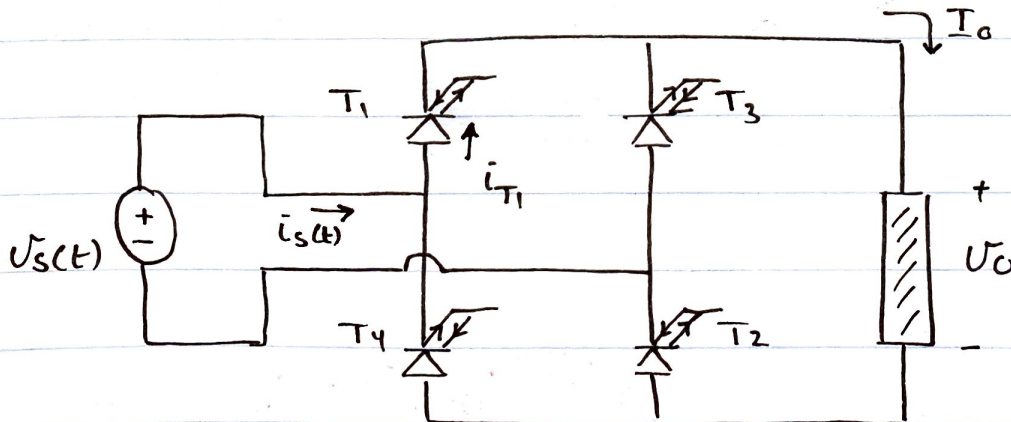 I₀
T₁
T₃
i_T₁
+
+
−
i_s(t)
v_s(t)
v₀
T₄
T₂
−